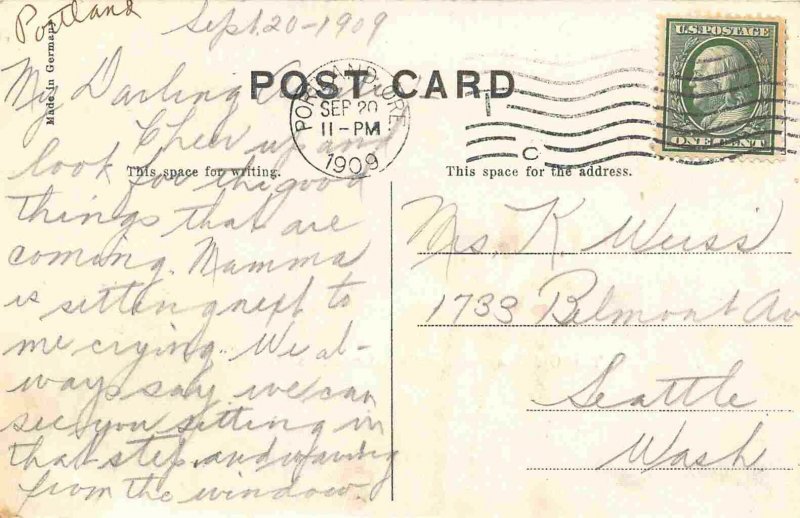 Portland
Sept. 20-1909
Made in Germany
POST CARD
PORTLAND, ORE.
SEP 20
11-PM
1909
T
C
U.S.POSTAGE
ONE CENT
This space for writing.
This space for the address.
My Darling
Cheer up and
look for the good
things that are
coming. Mamma
is sitting next to
me crying. We al-
ways say we can
see you sitting in
that step and waving
from the window.
Mrs. K. Weiss
1733 Belmont Av
Seattle
Wash